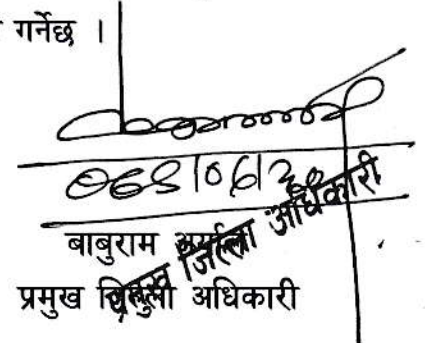 गर्नेछ ।
बाबुराम अर्याल
प्रमुख जिल्ला अधिकारी
प्रमुख जिल्ला अधिकारी